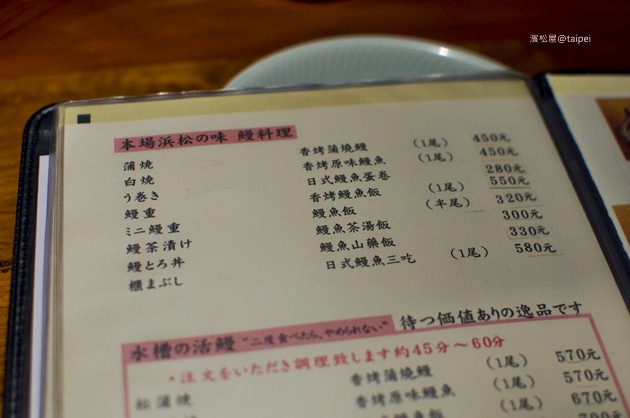 濱松屋@taipei
本場浜松の味 鰻料理
蒲焼 香烤蒲燒鰻 (1尾) 450元
白焼 香烤原味鰻魚 (1尾) 450元
う巻き 日式鰻魚蛋卷 280元
鰻重 香烤鰻魚飯 (1尾) 550元
ミニ鰻重 鰻魚飯 (半尾) 320元
鰻茶漬け 鰻魚茶湯飯 300元
鰻とろ丼 鰻魚山藥飯 330元
櫃まぶし 日式鰻魚三吃 (1尾) 580元
水槽の活鰻 "二度食べたら、やめられない" 待つ価値ありの逸品です
・注文をいただき調理致します約45分～60分
松蒲焼 香烤蒲燒鰻 (1尾) 570元
香烤原味鰻魚 (1尾) 570元
(1尾) 670元